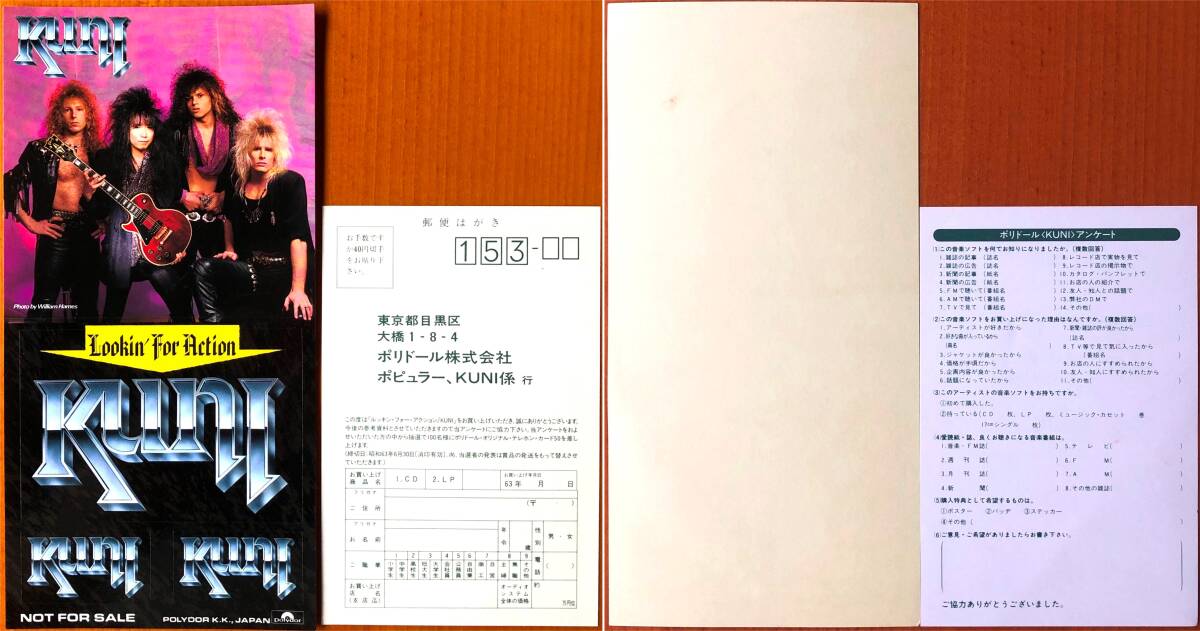 KUNI
Photo by William Hames
Lookin' For Action
KUNI
KUNI
KUNI
NOT FOR SALE
POLYDOR K.K., JAPAN
Polydor
郵便はがき
お手数です
が40円切手
をお貼り下
さい。
153-
東京都目黒区
大橋1-8-4
ポリドール株式会社
ポピュラー、KUNI係 行
この度は「ルッキン・フォー・アクション/KUNI」をお買い上げいただき、誠にありがとうございます。
今後の参考資料とさせていただきますので当アンケートにご協力下さい。当アンケートをおよ
せいただいた方の中から抽選で100名様にポリドール・オリジナル・テレホン・カード50を差し
上げます。
(締切日:昭和63年6月30日(消印有効)、尚、当選者の発表は賞品の発送をもって替えさせ
ていただきます)
お買い上げ
商品名
1.CD 2.LP
お買い上げ年月日
63年 月 日
フリガナ
ご住所
(〒 - )
フリガナ
お名前
年令
歳
性別
男・女
ご職業
1 小学生
2 中学生
3 高校生
4 短大生 大学生
5 会社員
6 公務員
7 自由業
商工
自営
8 主婦
無職
9 その他
電話
( )
お買い上げ
店名
(支店迄)
オーディオ
システム
全体の価格
約
万円位
ポリドール〈KUNI〉アンケート
(1)この音楽ソフトを何でお知りになりましたか。(複数回答)
1.雑誌の記事 (誌名 ) 8.レコード店で実物を見て
2.雑誌の広告 (誌名 ) 9.レコード店の掲示物で
3.新聞の記事 (紙名 ) 10.カタログ・パンフレットで
4.新聞の広告 (紙名 ) 11.お店の人の紹介で
5.FMで聴いて(番組名 ) 12.友人・知人との話題で
6.AMで聴いて(番組名 ) 13.弊社のDMで
7.TVで見て (番組名 ) 14.その他( )
(2)この音楽ソフトをお買い上げになった理由はなんですか。(複数回答)
1.アーティストが好きだから 7.新聞・雑誌の評が良かったから
2.好きな曲が入っているから (誌名 )
(曲名 ) 8.TV等で見て気に入ったから
3.ジャケットが良かったから (番組名 )
4.価格が手頃だから 9.お店の人にすすめられたから
5.企画内容が良かったから 10.友人・知人にすすめられたから
6.話題になっていたから 11.その他( )
(3)このアーティストの音楽ソフトをお持ちですか。
①初めて購入した。
②持っている(CD 枚、LP 枚、ミュージック・カセット 巻
(7㎝シングル 枚)
(4)愛読紙・誌、良くお聴きになる音楽番組は。
1.音楽・FM誌( ) 5.テレビ( )
2.週刊誌( ) 6.FM( )
3.月刊誌( ) 7.AM( )
4.新聞( ) 8.その他の雑誌( )
(5)購入特典として希望するものは。
①ポスター ②バッヂ ③ステッカー
④その他( )
(6)ご意見・ご希望がありましたらお書き下さい。
ご協力ありがとうございました。